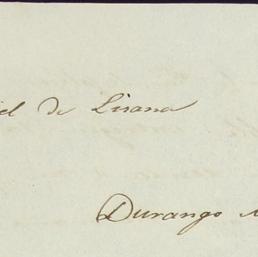 el de Lisana
Durango